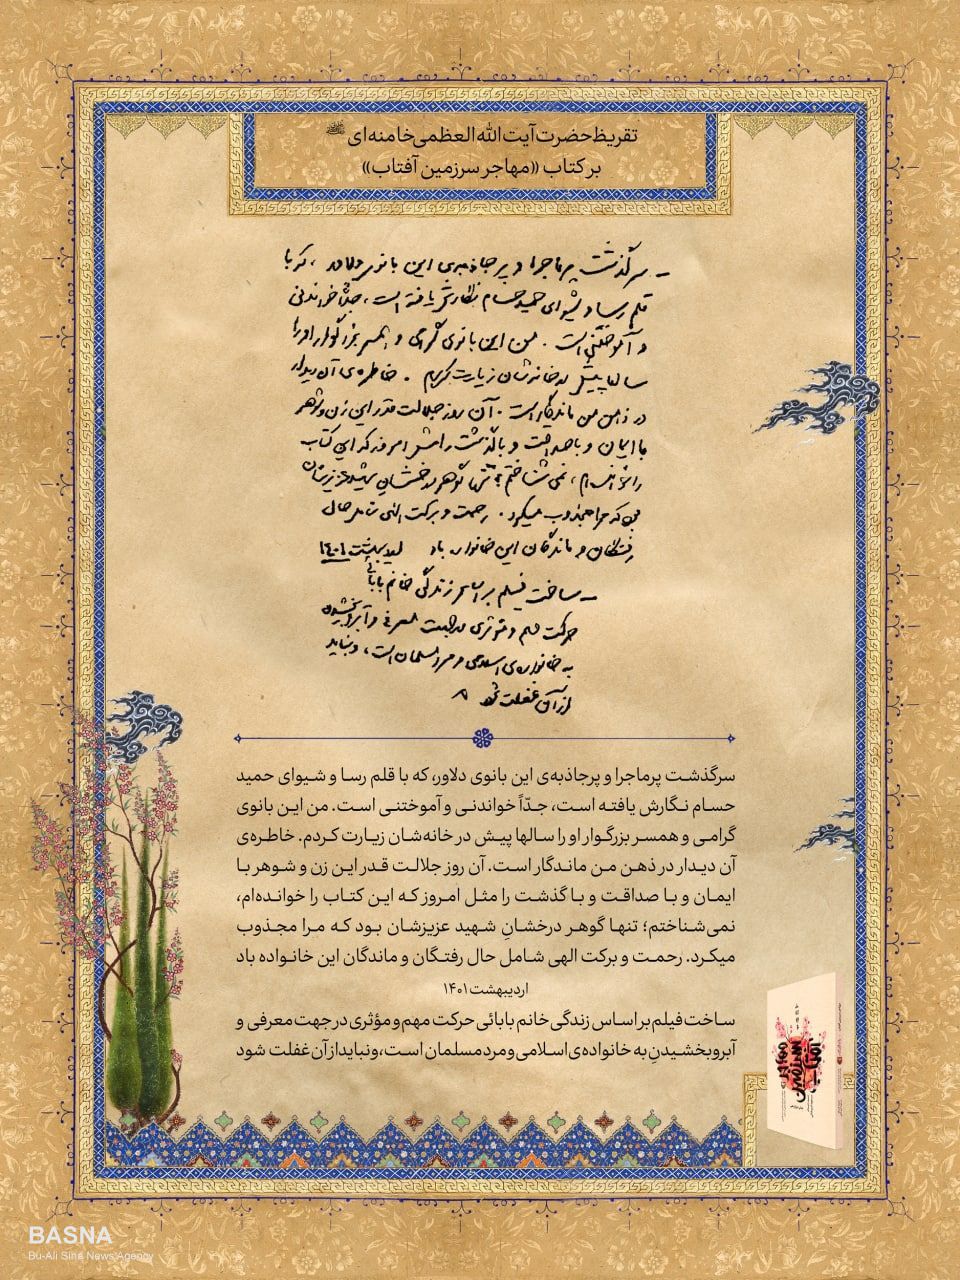 تقریظ حضرت آیت الله العظمی خامنه‌ای
بر کتاب «مهاجر سرزمین آفتاب»
ـ سرگذشت پرماجرا و پرجاذبه‌ی این بانوی دلاور، که با
قلم رسا و شیوای حمید حسام نگارش یافته است، جدّاً خواندنی
و آموختنی است. من این بانوی گرامی و همسر بزرگوار او را
سالها پیش در خانه‌شان زیارت کردم. خاطره‌ی آن دیدار
در ذهن من ماندگار است. آن روز جلالت قدر این زن و شوهر
با ایمان و با صداقت و با گذشت را مثل امروز که این کتاب
را خوانده‌ام، نمی‌شناختم؛ تنها گوهر درخشانِ شهید عزیزشان
بود که مرا مجذوب میکرد. رحمت و برکت الهی شامل حال
رفتگان و ماندگان این خانواده باد اردیبهشت ۱۴۰۱
ـ ساخت فیلم بر اساس زندگی خانم بابائی
حرکت مهم و مؤثری در جهت معرفی و آبرو بخشیدن
به خانواده‌ی اسلامی و مرد مسلمان است، و نباید
از آن غفلت شود
سرگذشت پرماجرا و پرجاذبه‌ی این بانوی دلاور، که با قلم رسا و شیوای حمید
حسام نگارش یافته است، جدّاً خواندنی و آموختنی است. من این بانوی
گرامی و همسر بزرگوار او را سالها پیش در خانه‌شان زیارت کردم. خاطره‌ی
آن دیدار در ذهن من ماندگار است. آن روز جلالت قدر این زن و شوهر با
ایمان و با صداقت و با گذشت را مثل امروز که این کتاب را خوانده‌ام،
نمی‌شناختم؛ تنها گوهر درخشانِ شهید عزیزشان بود که مرا مجذوب
میکرد. رحمت و برکت الهی شامل حال رفتگان و ماندگان این خانواده باد
اردیبهشت ۱۴۰۱
ساخت فیلم بر اساس زندگی خانم بابائی حرکت مهم و مؤثری در جهت معرفی و
آبرو بخشیدنِ به خانواده‌ی اسلامی و مرد مسلمان است، و نباید از آن غفلت شود
مهاجر سرزمین آفتاب
BASNA
Bu-Ali Sina News Agency